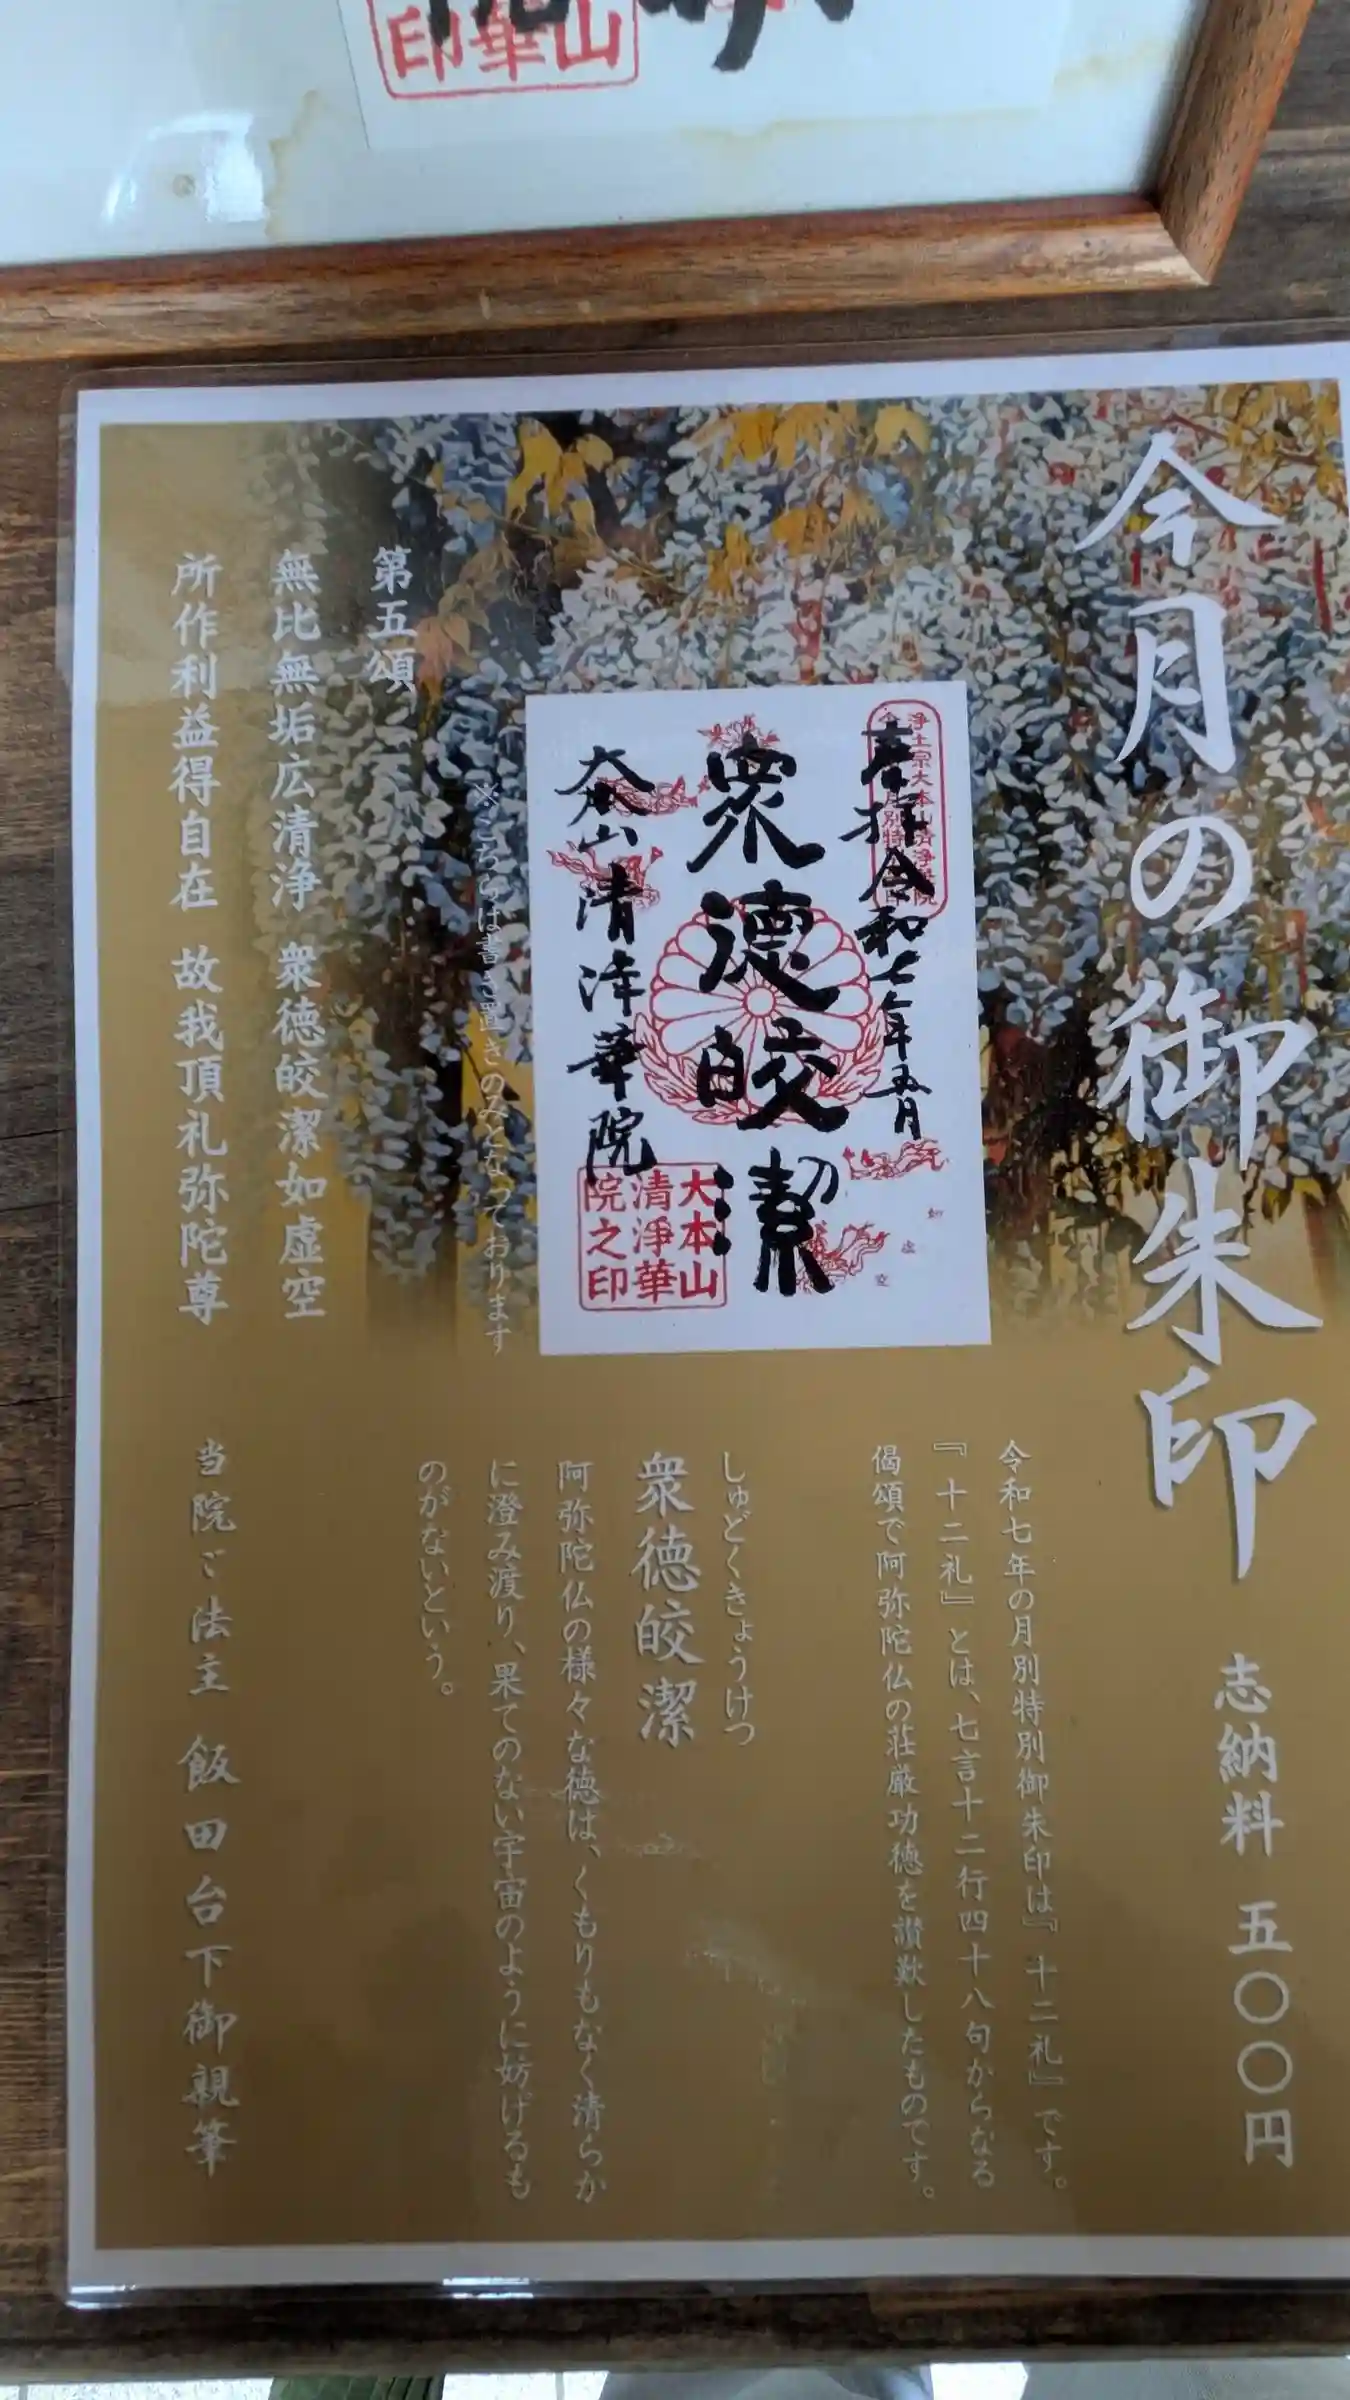 印華山
今月の御朱印
志納料 五〇〇円
令和七年の月別特別御朱印は『十二礼』です。
『十二礼』とは、七言十二行四十八句からなる
偈頌で阿弥陀仏の荘厳功徳を讃歎したものです。
しゅどくきょうけつ
衆徳皎潔
阿弥陀仏の様々な徳は、くもりもなく清らか
に澄み渡り、果てのない宇宙のように妨げるも
のがないという。
奉拝 令和七年五月
衆徳皎潔
大本山 清浄華院
大本山
清浄華
院之印
如虚空
※こちらは書き置きのみとなっております
第五頌
無比無垢広清浄 衆徳皎潔如虚空
所作利益得自在 故我頂礼弥陀尊
当院ご法主 飯田台下御親筆